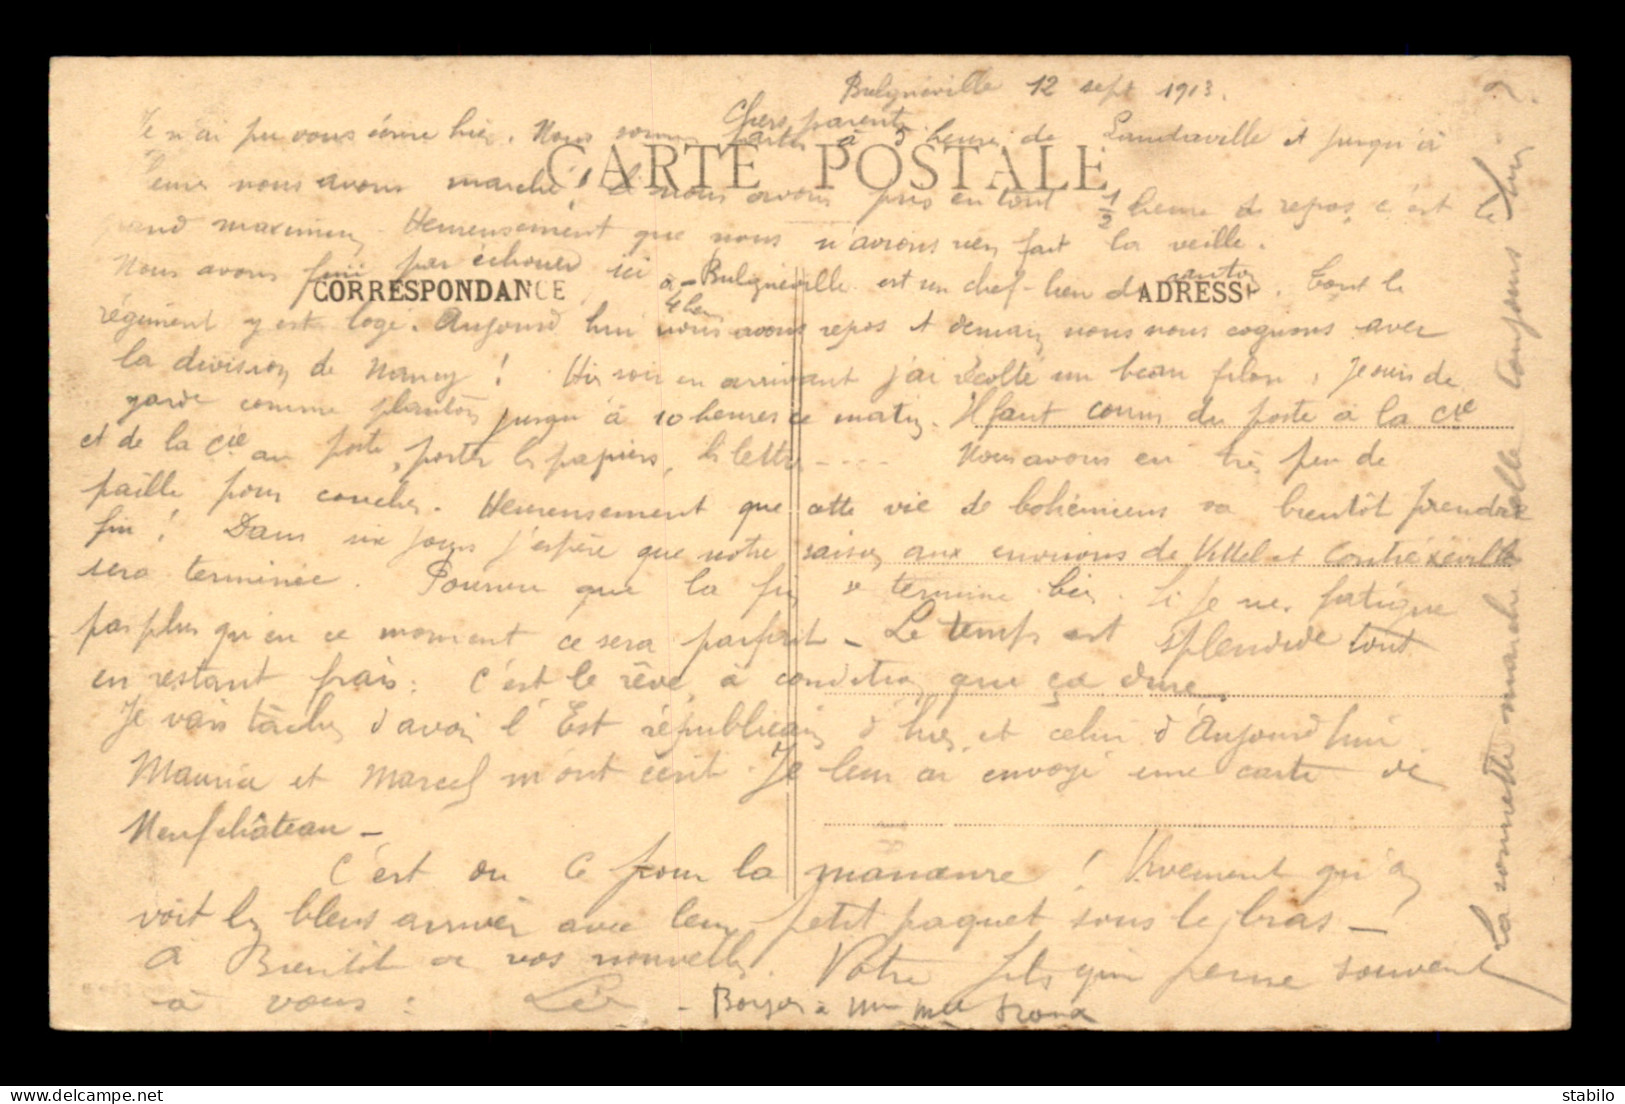 Bulgnéville 12 sept 1913.
Chers parents
Je n'ai pu vous écrire hier. Nous sommes partis à 5 heures de Landaville et jusqu'à
heures nous avons marché ! et nous avons pris en tout 1/2 heure de repos, c'est le
grand maximum. Heureusement que nous n'avions rien fait la veille.
Nous avons fini par échouer ici à 4 heu - Bulgnéville est un chef-lieu de canton. Tout le
régiment y est logé. Aujourd'hui nous avons repos et demain nous nous cognons avec
la division de Nancy ! Hier soir en arrivant j'ai récolté un beau filon, je suis de
garde comme planton jusqu'à 10 heures ce matin. Il faut courir du poste à la Cie
et de la Cie au poste, porter les papiers, les lettres - - - - Nous avons eu très peu de
paille pour coucher. Heureusement que cette vie de bohémiens va bientôt prendre
fin ! Dans six jours j'espère que notre saison aux environs de Vittel et Contréxeville
sera terminée. Pourvu que la fin se termine bien. Si je ne fatigue
pas plus qu'en ce moment ce sera parfait - Le temps est splendide tout
en restant frais : C'est le rêve, à condition que ça dure.
Je vais tâcher d'avoir l'Est républicain d'hier et celui d'Aujourd'hui.
Maurice et Marcel m'ont écrit. Je leur ai envoyé une carte de
Neufchâteau -
C'est ou ce jour la manœuvre ! Vivement qu'on
voit les bleus arriver avec leur petit paquet sous le bras -
A Bientôt de vos nouvelles. Votre fils qui pense souvent
à vous : - à
La sonnette marche-t-elle toujours
CARTE POSTALE
CORRESPONDANCE
ADRESSE
stabilo